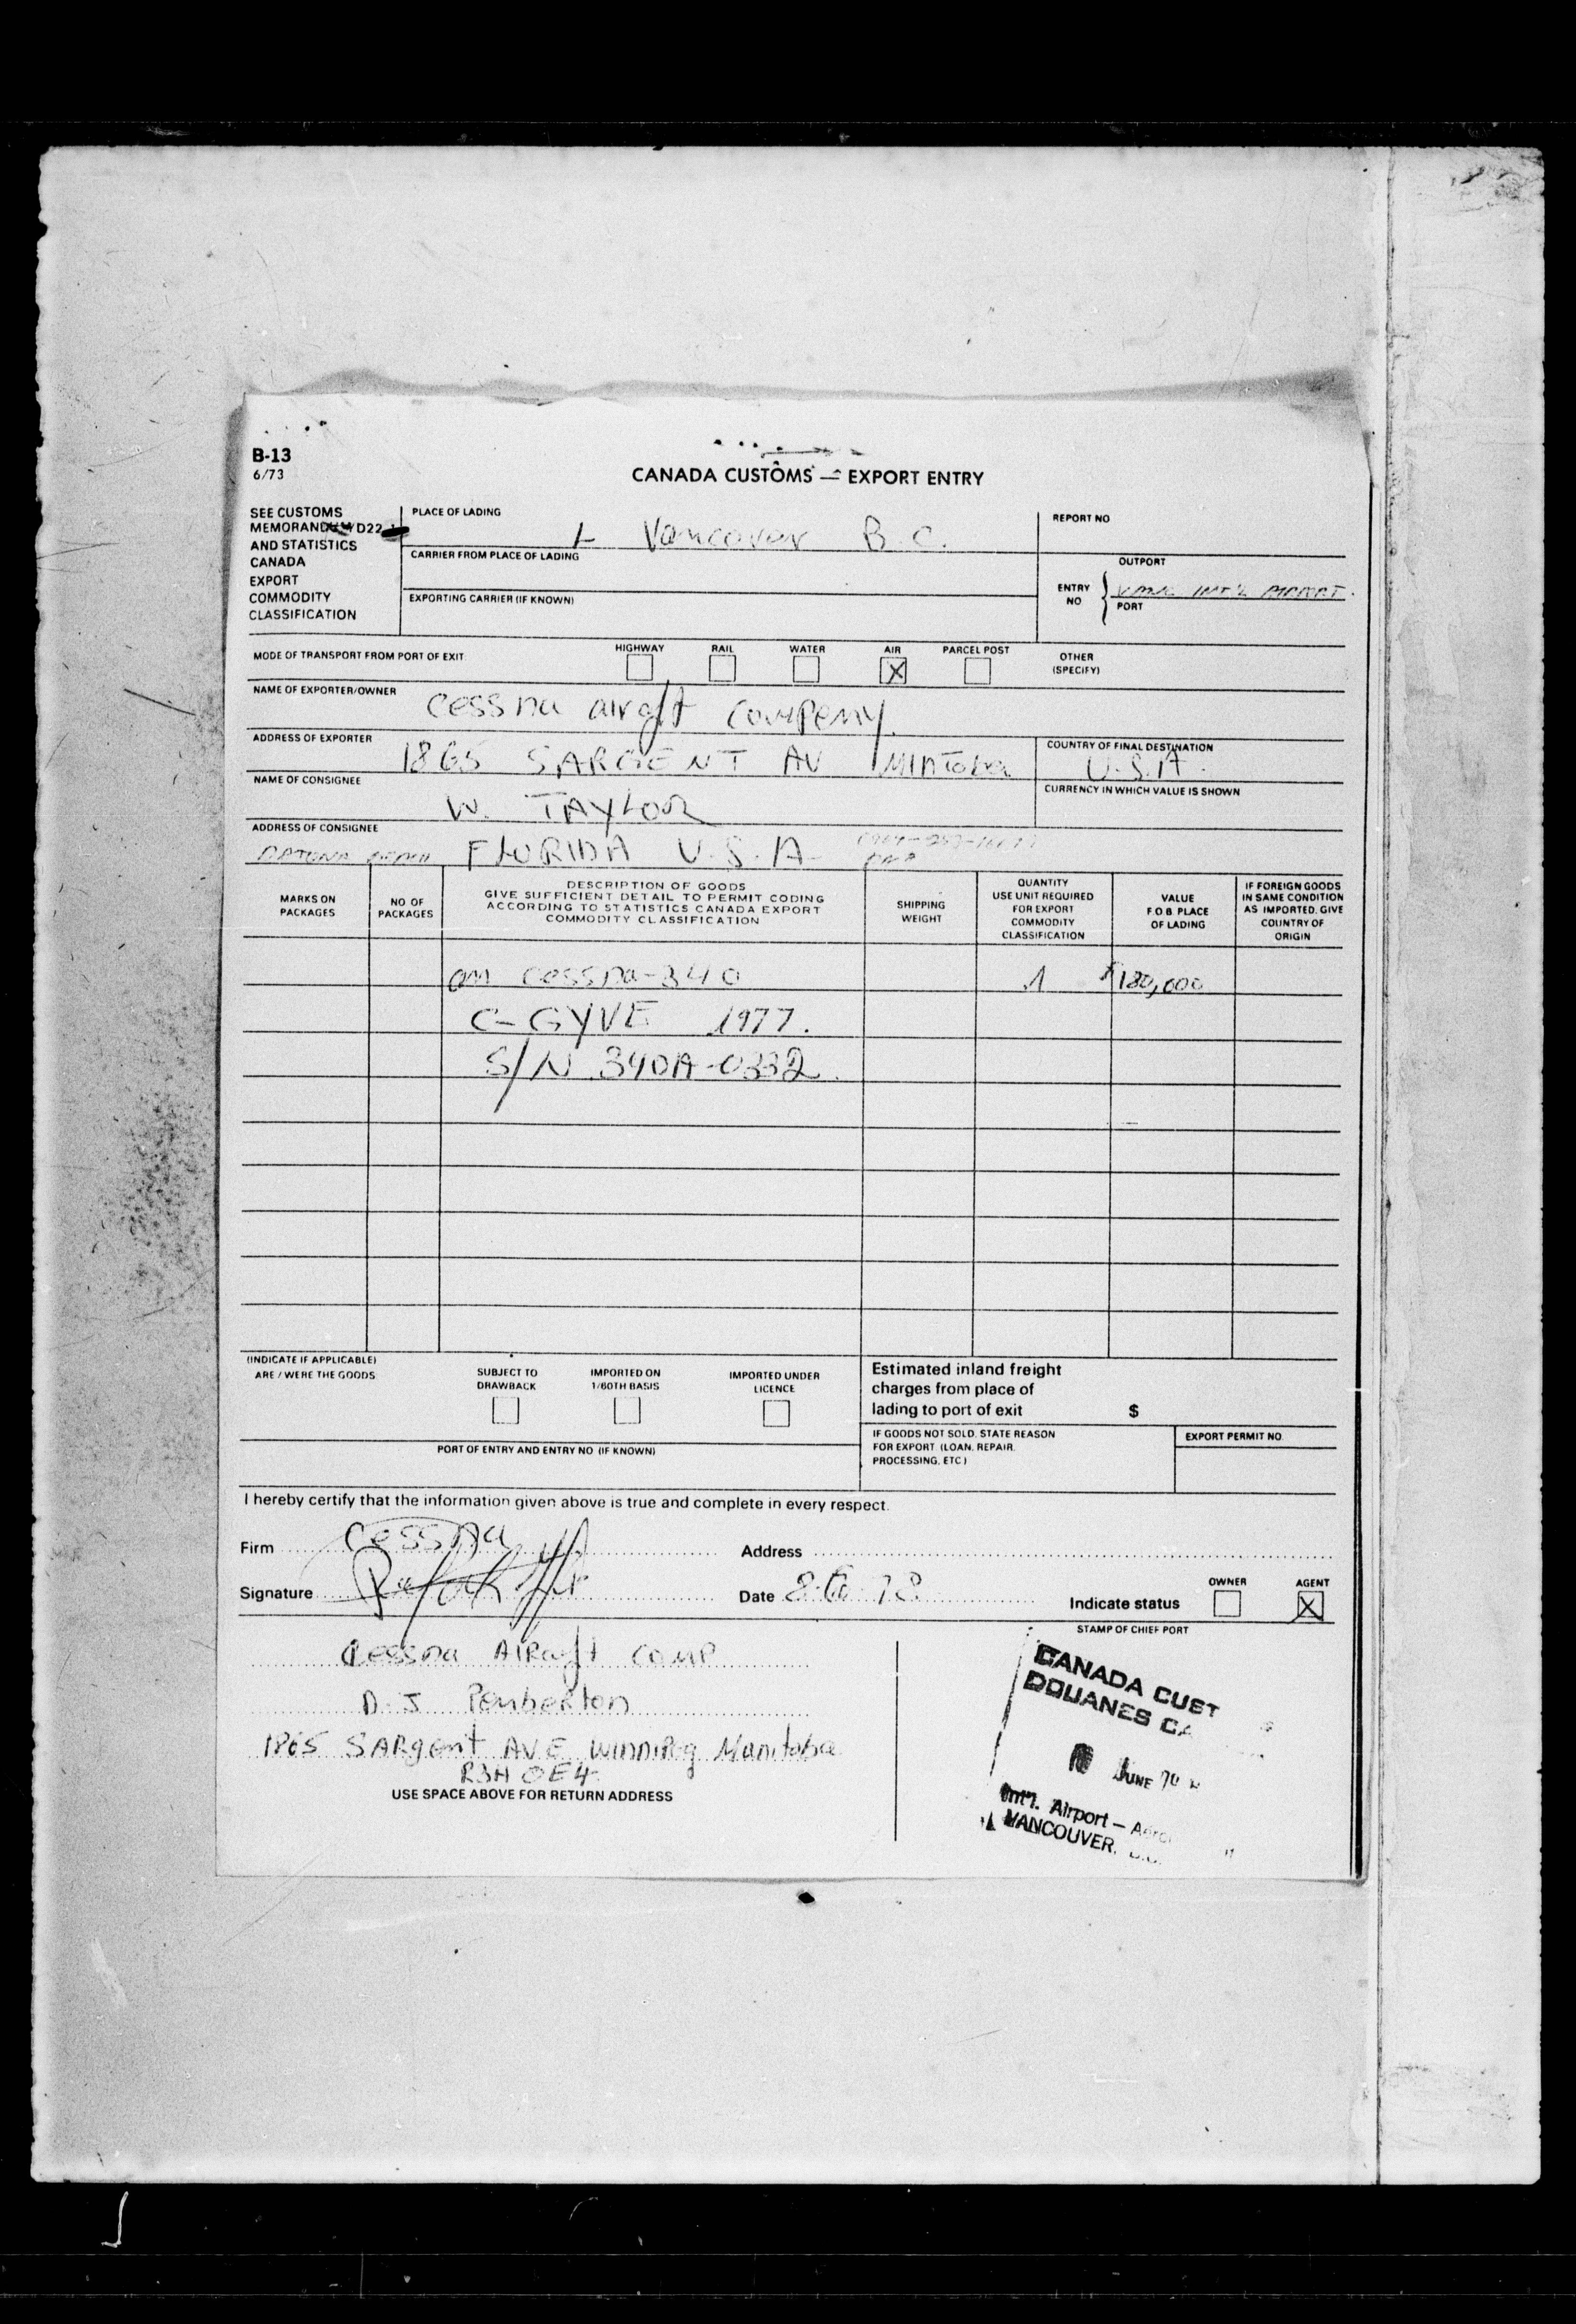 B-13
6/73
CANADA CUSTOMS — EXPORT ENTRY
SEE CUSTOMS
MEMORANDUM D22
AND STATISTICS
CANADA
EXPORT
COMMODITY
CLASSIFICATION
PLACE OF LADING
Vancover B.C.
CARRIER FROM PLACE OF LADING
EXPORTING CARRIER (IF KNOWN)
REPORT NO
OUTPORT
ENTRY NO
VANC INT'L AIRPORT.
PORT
MODE OF TRANSPORT FROM PORT OF EXIT
HIGHWAY RAIL WATER AIR PARCEL POST OTHER
X (SPECIFY)
NAME OF EXPORTER/OWNER
cessna aircaft company.
ADDRESS OF EXPORTER
1865 SARGENT AV
COUNTRY OF FINAL DESTINATION
U.S.A.
NAME OF CONSIGNEE
W. TAYLOR
CURRENCY IN WHICH VALUE IS SHOWN
ADDRESS OF CONSIGNEE
FLORIDA U.S.A
MARKS ON PACKAGES
NO OF PACKAGES
DESCRIPTION OF GOODS
GIVE SUFFICIENT DETAIL TO PERMIT CODING
ACCORDING TO STATISTICS CANADA EXPORT
COMMODITY CLASSIFICATION
SHIPPING WEIGHT
QUANTITY
USE UNIT REQUIRED
FOR EXPORT
COMMODITY
CLASSIFICATION
VALUE
F.O.B. PLACE
OF LADING
IF FOREIGN GOODS
IN SAME CONDITION
AS IMPORTED, GIVE
COUNTRY OF
ORIGIN
on cessna-340 1 $180,000
C-GYVE 1977.
S/N 340A-0332.
(INDICATE IF APPLICABLE)
ARE / WERE THE GOODS
SUBJECT TO DRAWBACK
IMPORTED ON 1/60TH BASIS
IMPORTED UNDER LICENCE
Estimated inland freight
charges from place of
lading to port of exit $
PORT OF ENTRY AND ENTRY NO (IF KNOWN)
IF GOODS NOT SOLD, STATE REASON
FOR EXPORT (LOAN, REPAIR,
PROCESSING, ETC)
EXPORT PERMIT NO.
I hereby certify that the information given above is true and complete in every respect.
Firm cessna Address
Signature Date 8.6.78
Indicate status OWNER AGENT X
STAMP OF CHIEF PORT
Cessna Aircaft COMP
D.J Pemberton
1865 SARgent AVE Winnipeg Manitoba
R3H 0E4
USE SPACE ABOVE FOR RETURN ADDRESS
CANADA CUST
DOUANES CA
JUNE
Int'l. Airport —
VANCOUVER, B.C.